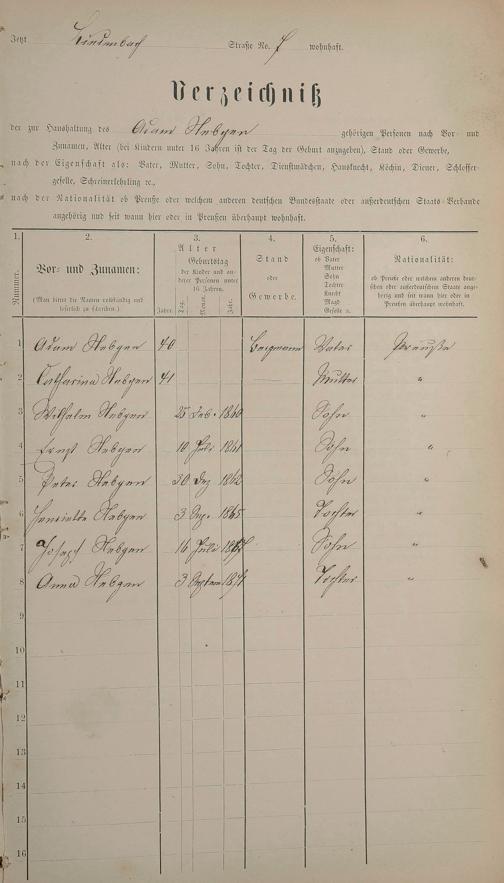 Jetzt Lindenbach Straße No. 7 wohnhaft.
Verzeichniß
der zur Haushaltung des Adam Nebgen gehörigen Personen nach Vor- und
Zunamen, Alter (bei Kindern unter 16 Jahren ist der Tag der Geburt anzugeben), Stand oder Gewerbe,
nach der Eigenschaft als: Vater, Mutter, Sohn, Tochter, Dienstmädchen, Hausknecht, Köchin, Diener, Schlosser-
geselle, Schreinerlehrling ec.,
nach der Nationalität ob Preuße oder welchem anderen deutschen Bundesstaate oder außerdeutschen Staats-Verbande
angehörig und seit wann hier oder in Preußen überhaupt wohnhaft.
1. 2. 3. 4. 5. 6.
Nummer.
Vor- und Zunamen:
(Man bittet die Namen vollständig und
leserlich zu schreiben.)
Alter
Geburtstag
der Kinder und an-
derer Personen unter
16 Jahren.
Jahre. Tag. Monat. Jahr.
Stand
oder
Gewerbe.
Eigenschaft:
ob Vater
Mutter
Sohn
Tochter
Knecht
Magd
Geselle ec.
Nationalität:
ob Preuße oder welchem anderen deut-
schen oder außerdeutschen Staate ange-
hörig und seit wann hier oder in
Preußen überhaupt wohnhaft.
1 Adam Nebgen 40 Bergmann Vater Preuße
2 Catharina Nebgen 41 Mutter "
3 Wilhelm Nebgen 25 Feb. 1860 Sohn "
4 Ernst Nebgen 10 Juli 1861 Sohn "
5 Peter Nebgen 30 Dez 1862 Sohn "
6 Henriette Nebgen 3 1865 Tochter "
7 Joseph Nebgen 16 Juli Sohn "
8 Anna Nebgen 3 Septem 1871 Tochter "
9
10
11
12
13
14
15
16